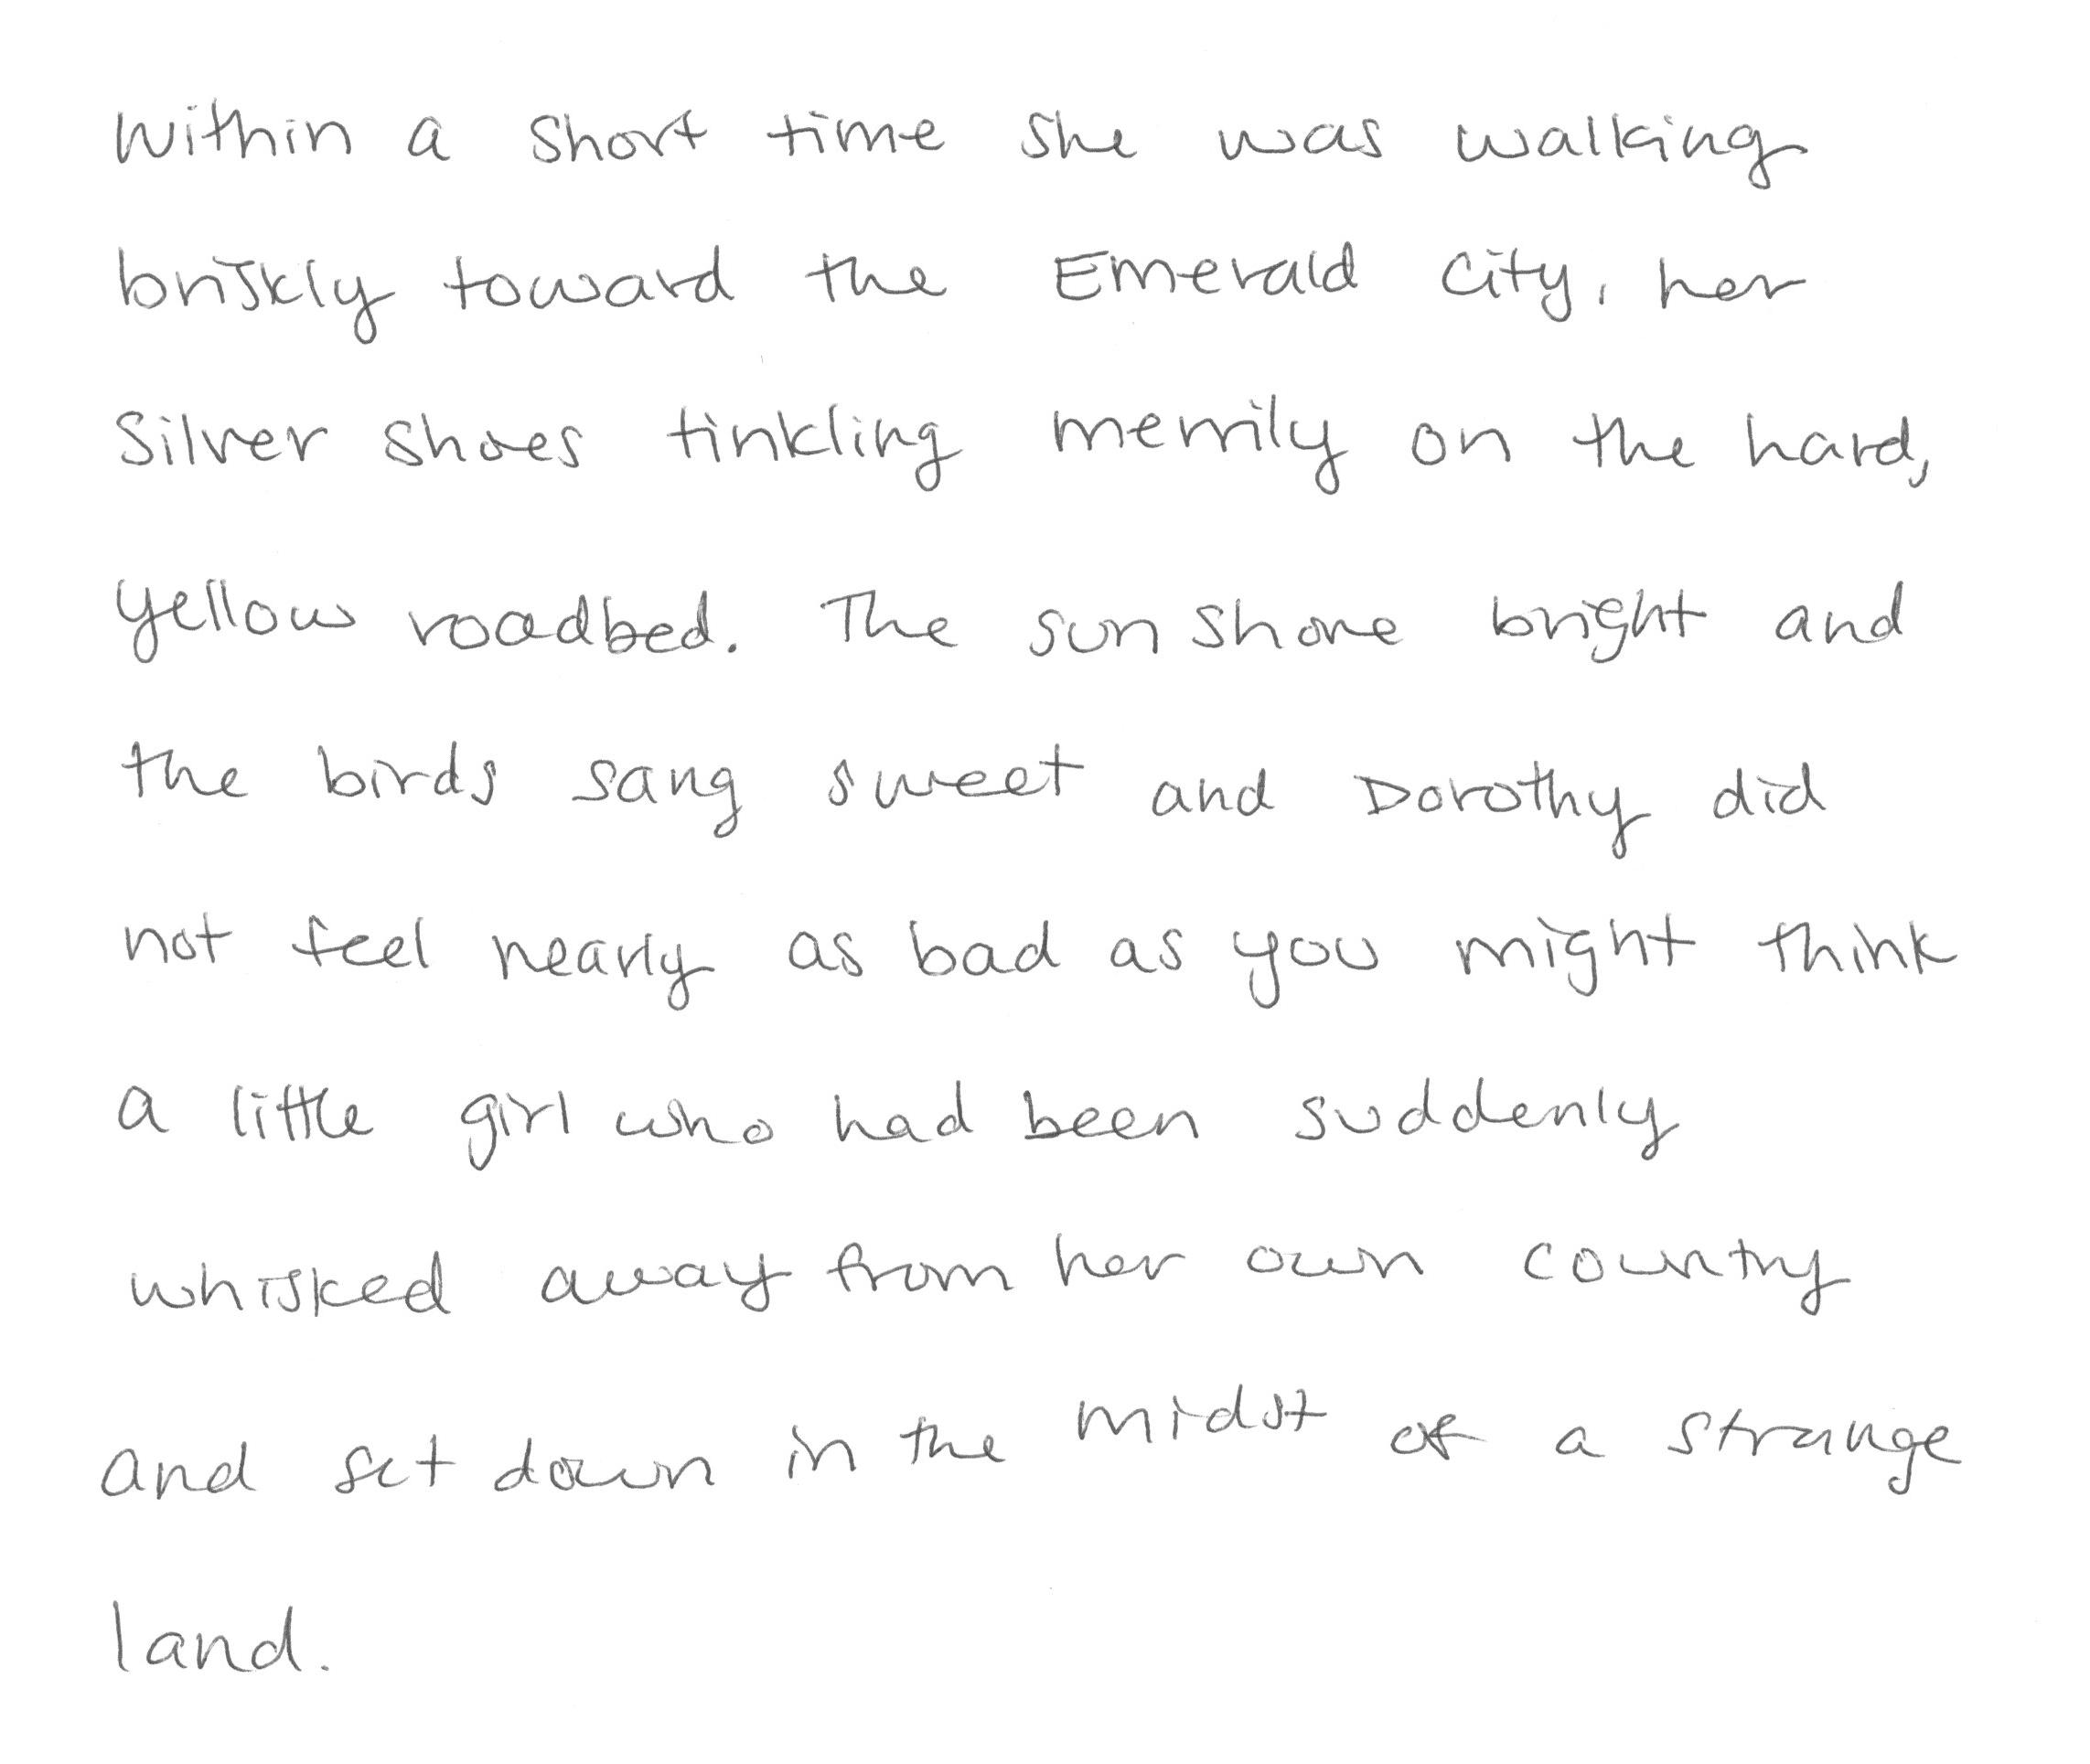 Within a short time she was walking
briskly toward the Emerald City, her
Silver shoes tinkling merrily on the hard,
yellow roadbed. The sun shone bright and
the birds sang sweet and Dorothy did
not feel nearly as bad as you might think
a little girl who had been suddenly
whisked away from her own country
and set down in the midst of a strange
land.